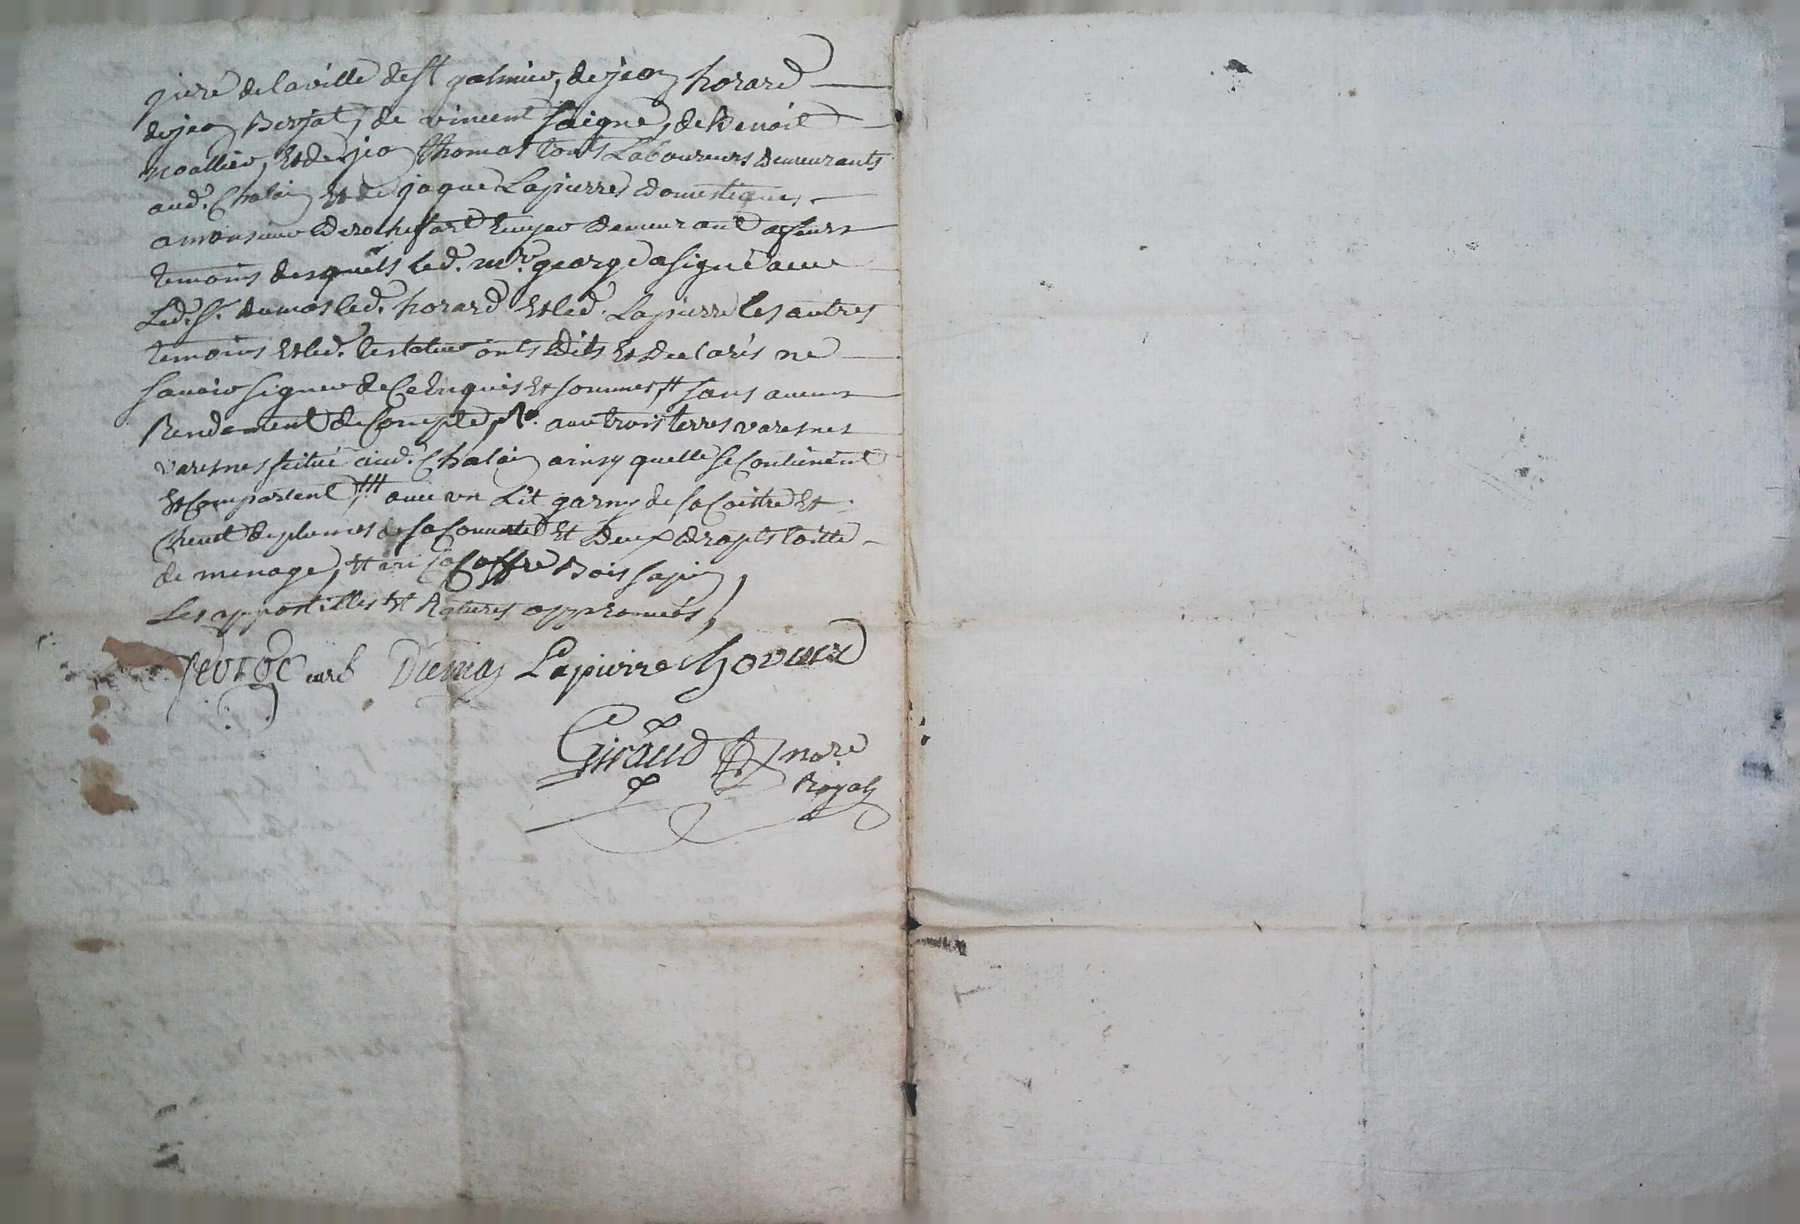 juré de la ville de st galmier, de jean horard
de jean Berjat, de vincent saigne, de Benoit
noallier, et de jean thomas touts Laboureurs demeurants
aud. Chalain et de jaque Lapierre domestique
a monsieur de rochefort Ecuyer demeurant a feurs
temoins desquels led. mre. george a signé avec
Led. sr. dumas led. horard et led. Lapierre les autres
temoins et led. testateur onts dits et declarés ne
savoir signer de ce enquis et sommes # sans aucun
Rendement de Compte, avec trois terres varesnes
varesnes scitué aud. Chalain ainsy quelle se Contienent
et Comportent ### avec un Lit garny de sa Coittre et
Chevet de plumes de sa Couverte et deux draps toille
de menage, et un Coffre Bois sapin,
Les appostilles et Ratures approuvés,
george curé Dumas Lapierre horard
Giraud nore
Royal